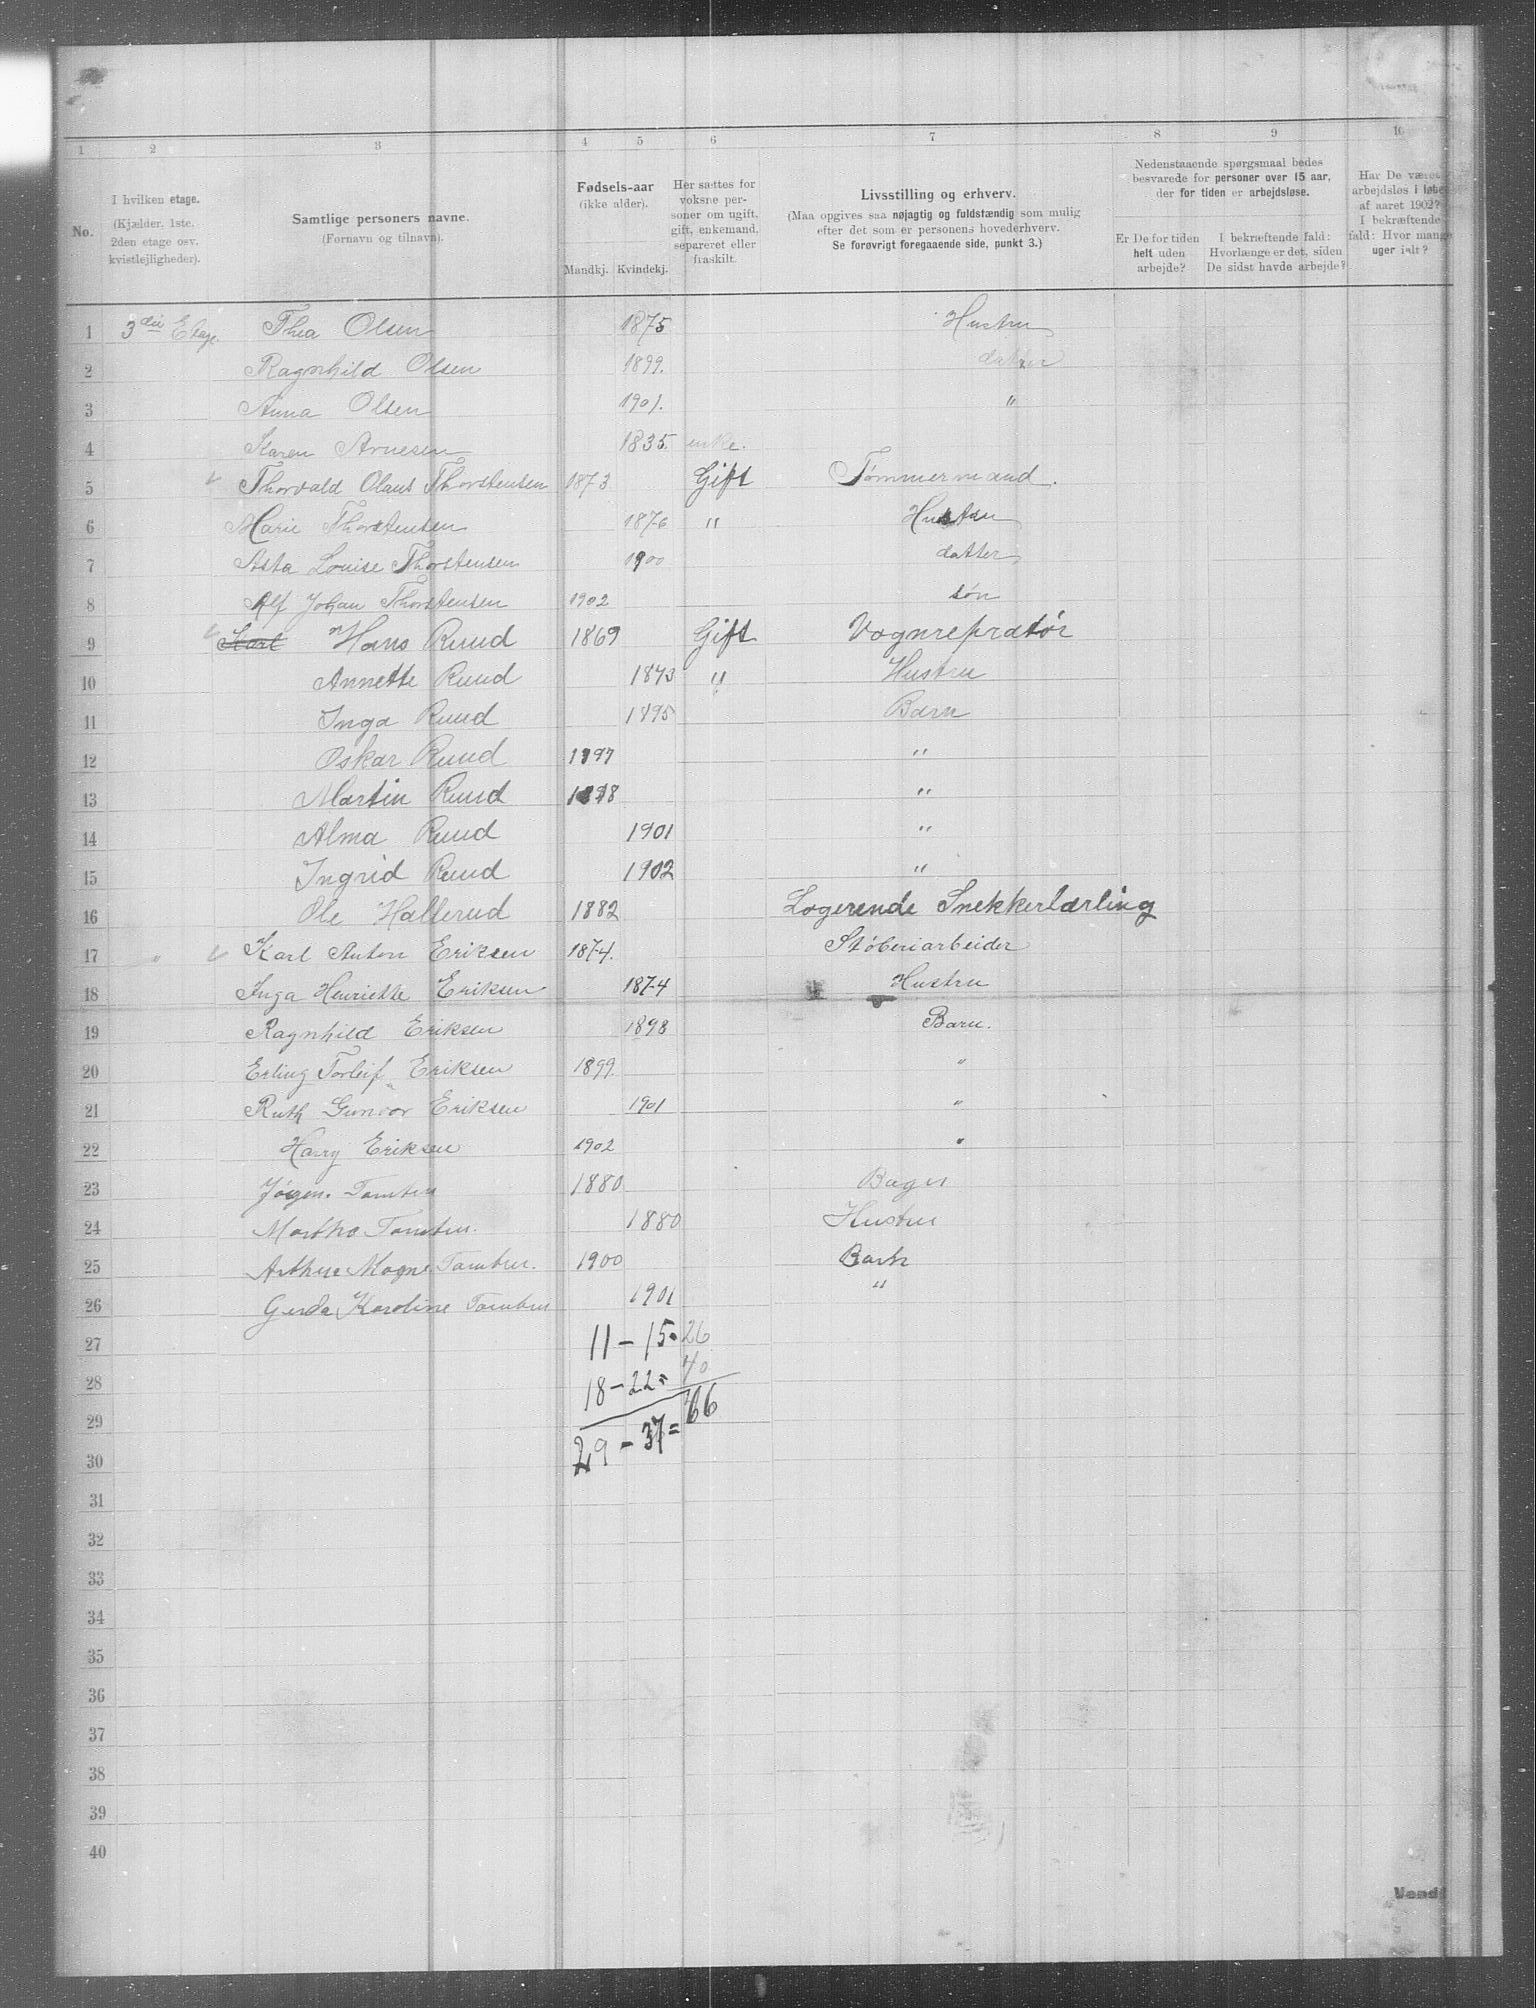 1 2 3 4 5 6 7 8 9 10
No.
I hvilken etage.
(Kjælder, 1ste.
2den etage osv.
kvistlejligheder).
Samtlige personers navne.
(Fornavn og tilnavn).
Fødsels-aar
(ikke alder).
Mandkj. Kvindekj.
Her sættes for
voksne per-
soner om ugift,
gift, enkemand,
separeret eller
fraskilt.
Livsstilling og erhverv.
(Maa opgives saa nøjagtig og fuldstændig som mulig
efter det som er personens hovederhverv.
Se forøvrigt foregaaende side, punkt 3.)
Nedenstaaende spørgsmaal bedes
besvarede for personer over 15 aar,
der for tiden er arbejdsløse.
Er De for tiden
helt uden
arbejde?
I bekræftende fald:
Hvorlænge er det, siden
De sidst havde arbejde?
Har De været
arbejdsløs i løbet
af aaret 1902?
I bekræftende
fald: Hvor mange
uger ialt?
1 3die Etage Thea Olsen 1875 Hustru
2 Ragnhild Olsen 1899. datter
3 Anna Olsen 1901. "
4 Karen Arnesen 1835. enke.
5 Thorvald Olaus Thorstensen 1873 Gift Tømmermand.
6 Marie Thorstensen 1876 " Hustru
7 Asta Louise Thorstensen 1900 datter
8 Alf Johan Thorstensen 1902 søn
9 Karl Hans Ruud 1869 Gift Vognrepratør
10 Annette Ruud 1873 " Hustru
11 Inga Ruud 1895 Barn
12 Oskar Ruud 1897 "
13 Martin Ruud "
14 Alma Ruud 1901 "
15 Ingrid Ruud 1902 "
16 Ole Hallerud 1882 Logerende Snekkerlærling
17 " Karl Anton Eriksen 1874. Støberiarbeider
18 Inga Henriette Eriksen 1874 Hustru
19 Ragnhild Eriksen 1898 Barn.
20 Erling Torleif Eriksen 1899. "
21 Ruth Gunvor Eriksen 1901 "
22 Harry Eriksen 1902 "
23 Jørgen Tambur 1880 Bager
24 Martha Tambur. 1880 Hustru
25 Arthur Magne Tambur. 1900 Barn
26 Gerda Karoline Tambur 1901 "
27 11 - 15 = 26
28 18 - 22 = 40
29 29 - 37 = 66
30
31
32
33
34
35
36
37
38
39
40
Vend!